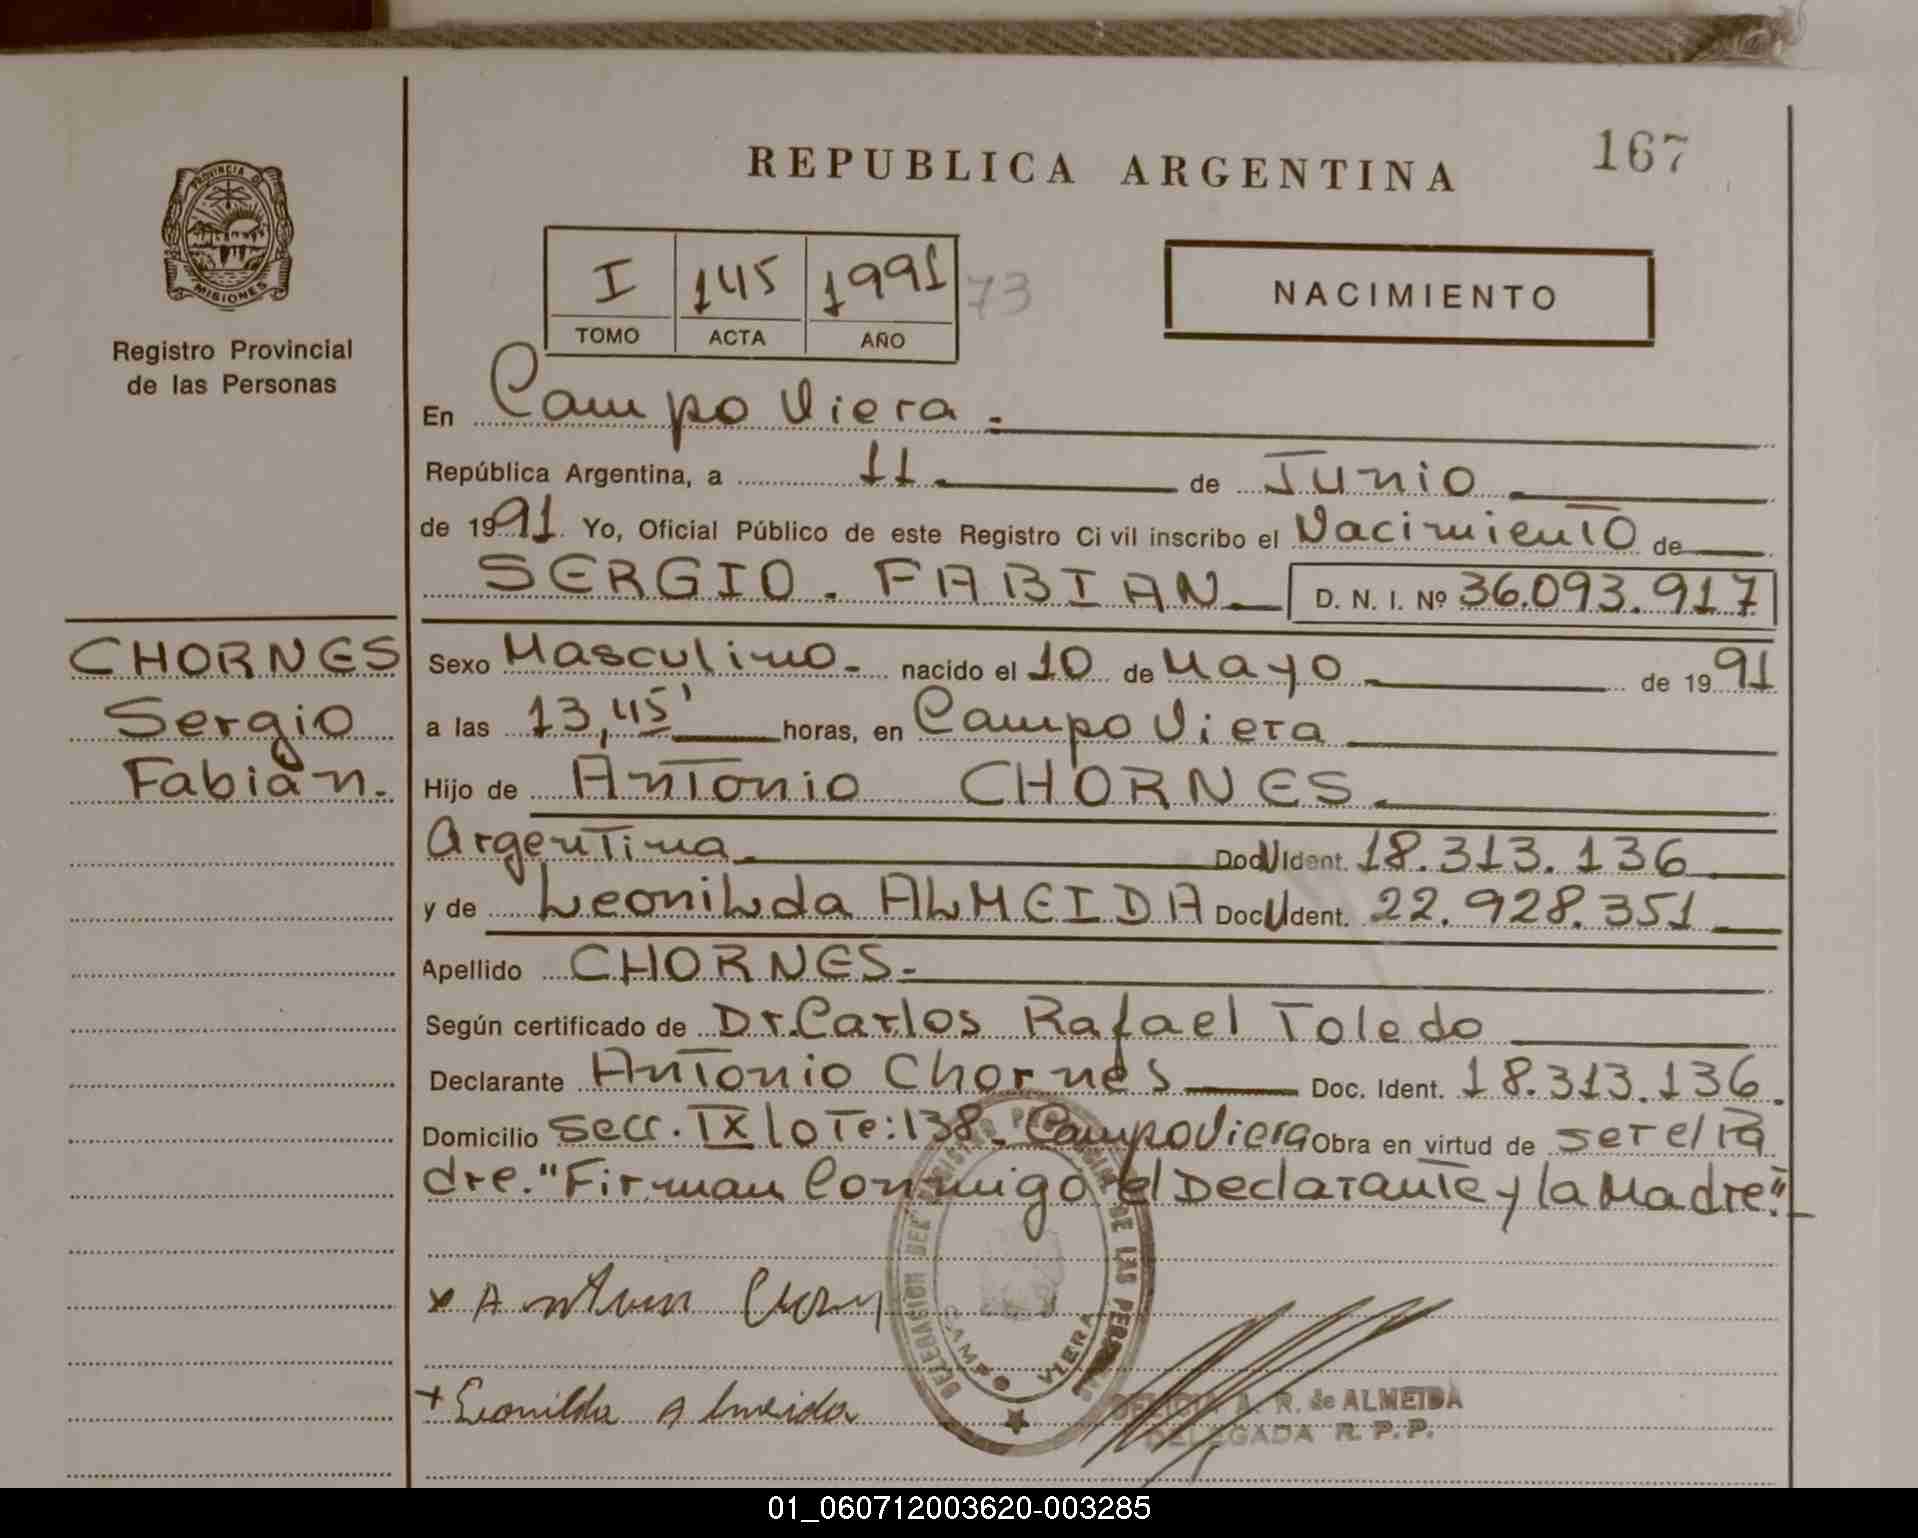 167
REPUBLICA ARGENTINA
PROVINCIA D
MISIONES
Registro Provincial
de las Personas
I 145 1991 73
TOMO ACTA AÑO
NACIMIENTO
En Campo Viera.
República Argentina, a 11 de Junio
de 1991. Yo, Oficial Público de este Registro Civil inscribo el Nacimiento de
SERGIO. FABIAN D. N. I. Nº 36.093.917
CHORNES
Sergio
Fabián.
Sexo Masculino. nacido el 10 de Mayo de 1991
a las 13,45' horas, en Campo Viera
Hijo de Antonio CHORNES.
Argentina Doc U Ident. 18.313.136
y de Leonilda ALMEIDA Doc U Ident. 22.928.351
Apellido CHORNES.
Según certificado de Dr. Carlos Rafael Toledo
Declarante Antonio Chornes Doc. Ident. 18.313.136.
Domicilio Secc. IX lote: 138. Campo Viera Obra en virtud de ser el Pa
dre. "Firman Conmigo el Declarante y la Madre."
x A
+ Leonilda Almeida
DELEGACION DEL REGISTRO PROVINCIAL DE LAS PERSONAS
CAMPO VIERA
A. R. de ALMEIDA
DELEGADA R. P. P.
01_060712003620-003285